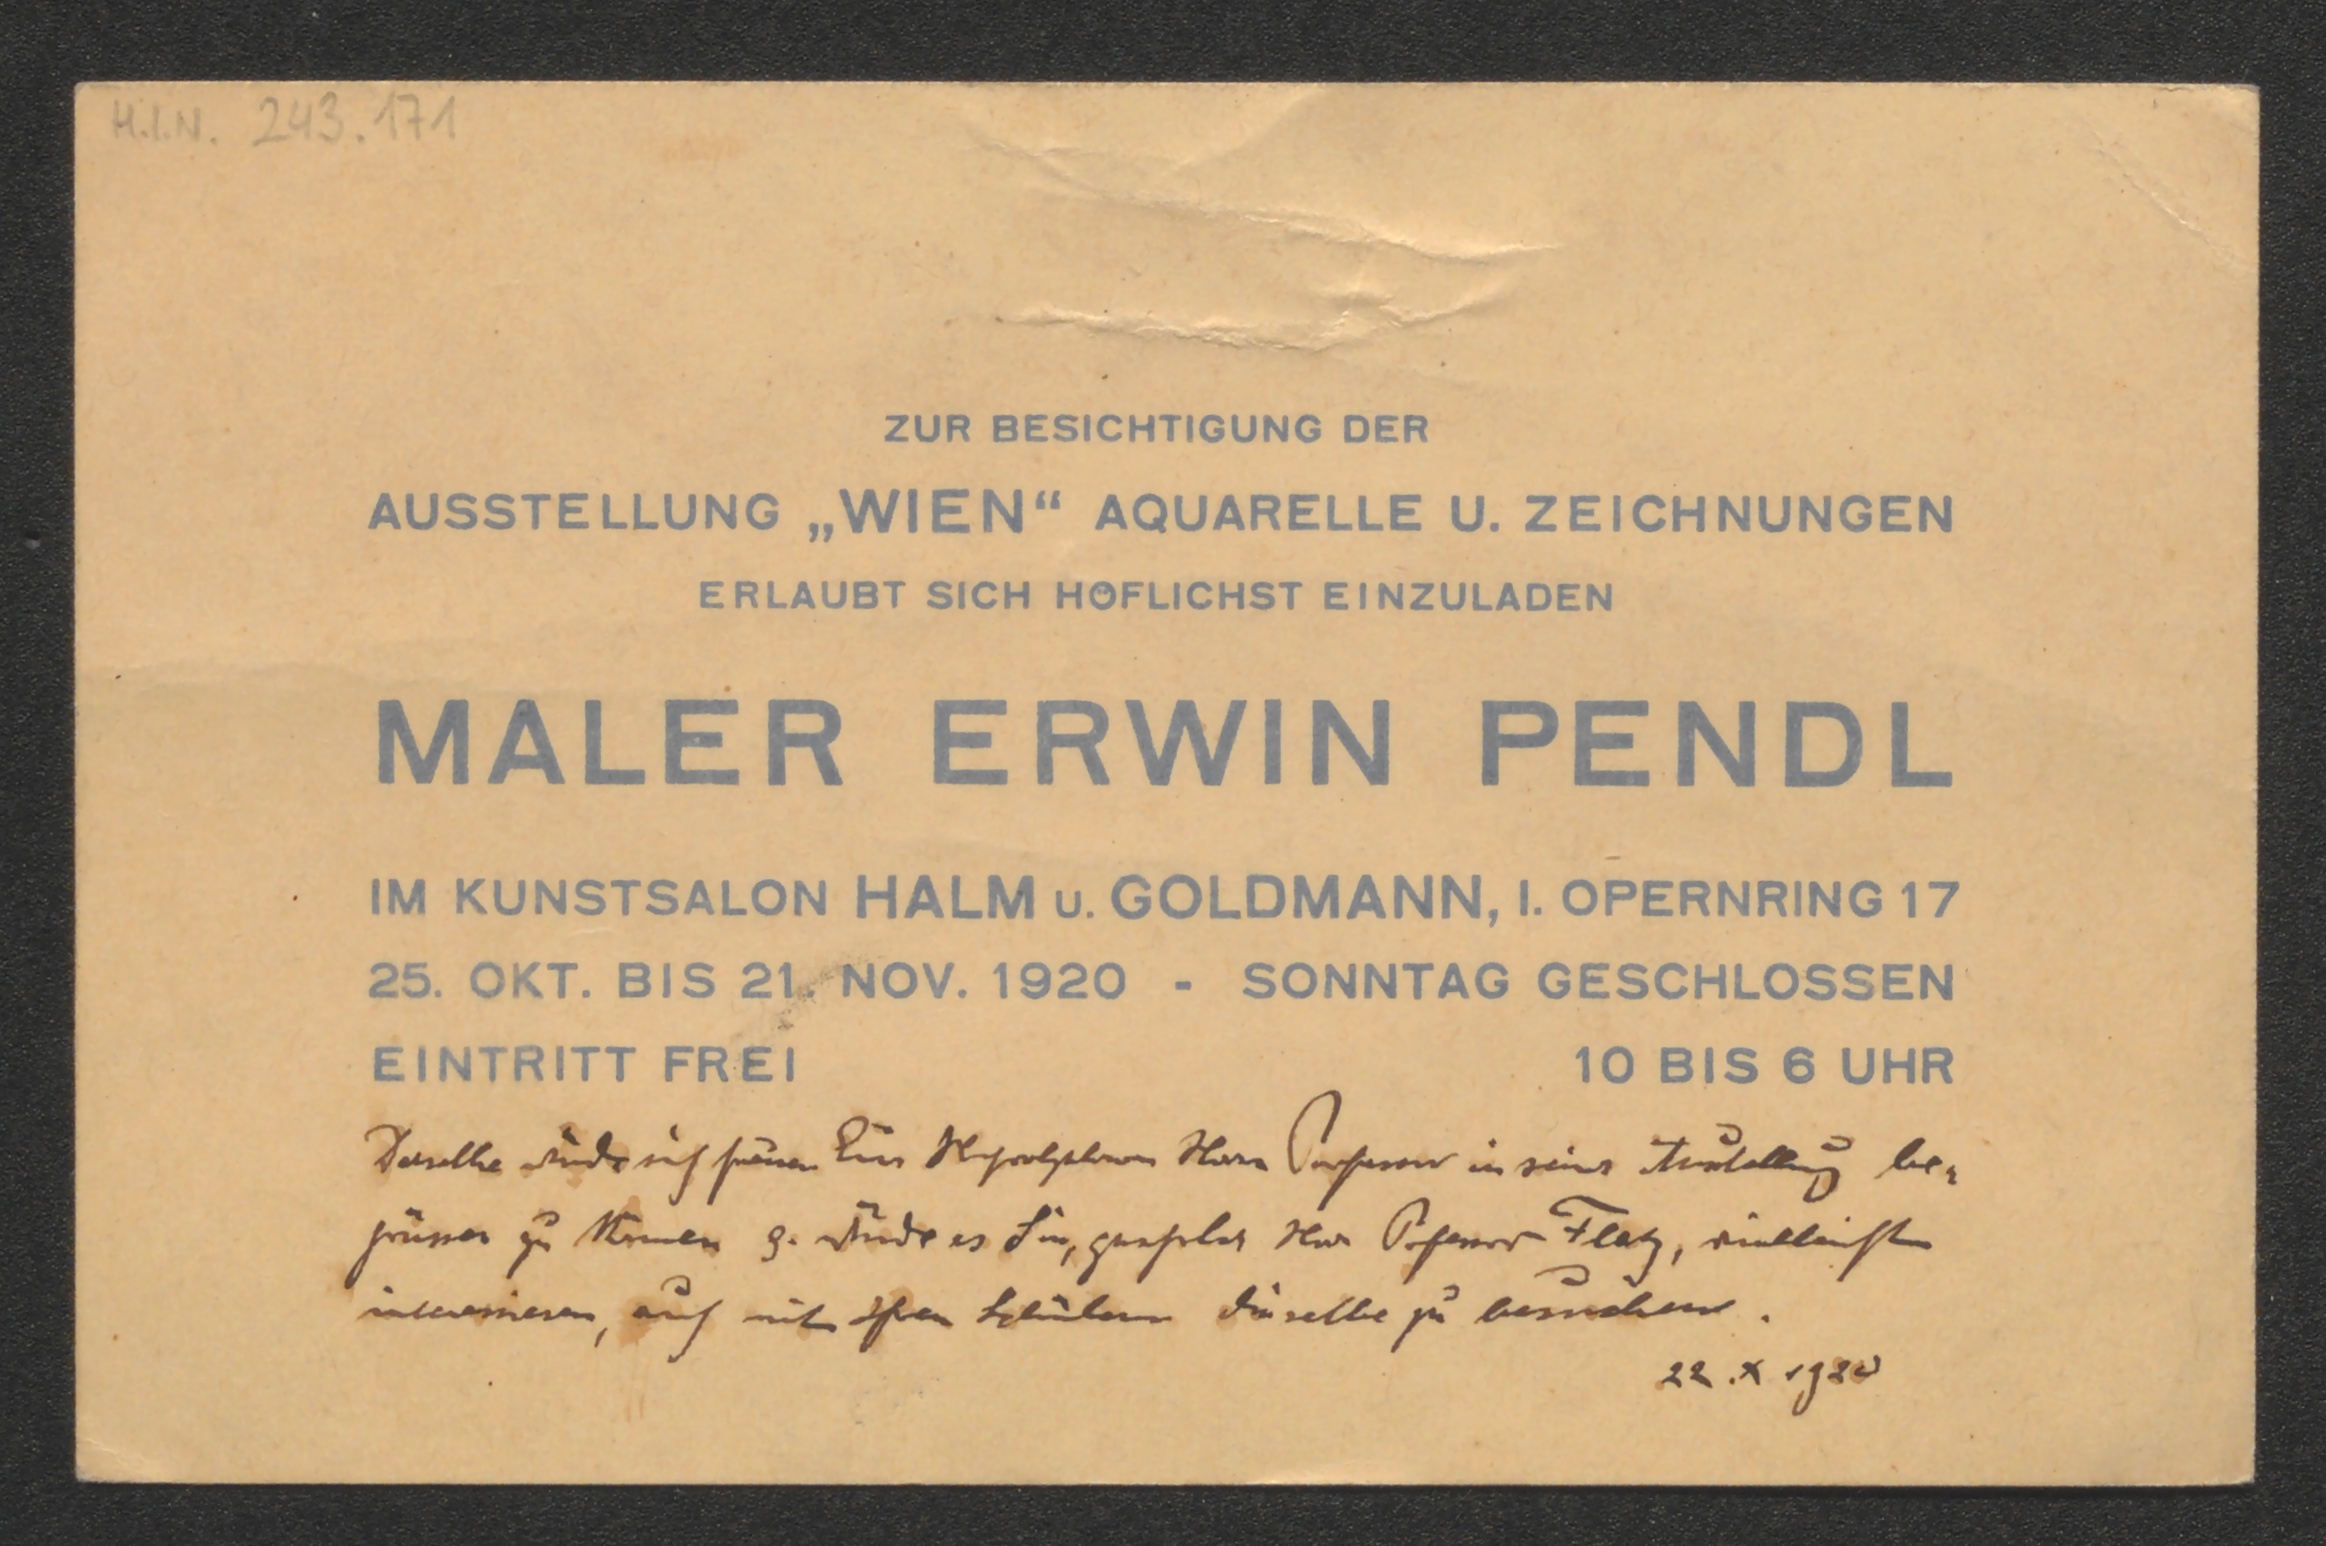 H.I.N. 243.171
ZUR BESICHTIGUNG DER
AUSSTELLUNG „WIEN“ AQUARELLE U. ZEICHNUNGEN
ERLAUBT SICH HÖFLICHST EINZULADEN
MALER ERWIN PENDL
IM KUNSTSALON HALM U. GOLDMANN, I. OPERNRING 17
25. OKT. BIS 21. NOV. 1920 - SONNTAG GESCHLOSSEN
EINTRITT FREI 10 BIS 6 UHR
Derselbe würde sich freuen Herrn Professor in seiner Ausstellung be-
grüssen zu können würde es Sie, Herr Professor Flatz, vielleicht
interessieren, auch mit Ihren Schülern dieselbe zu besuchen.
22. X 1920